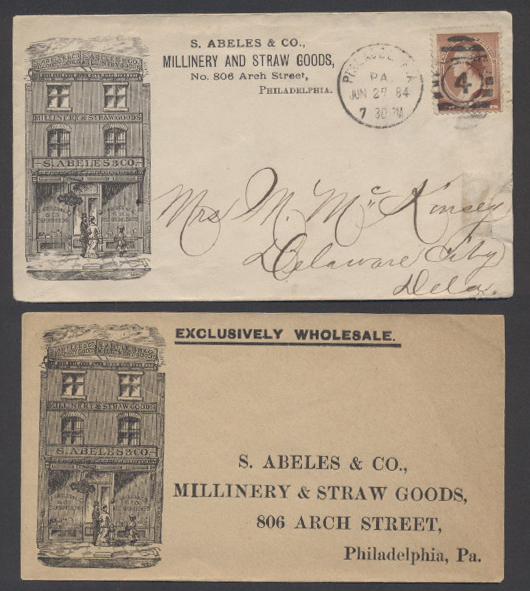 S. ABELES & CO.,
MILLINERY AND STRAW GOODS,
No. 806 Arch Street,
PHILADELPHIA.
PA.
JUN 27 84
7 30 PM
4
MILLINERY & STRAW GOODS
S. ABELES & CO.
Mrs. M. McKinsey
Delaware City
Dela.
EXCLUSIVELY WHOLESALE.
MILLINERY & STRAW GOODS
S. ABELES & CO.
S. ABELES & CO.,
MILLINERY & STRAW GOODS,
806 ARCH STREET,
Philadelphia, Pa.